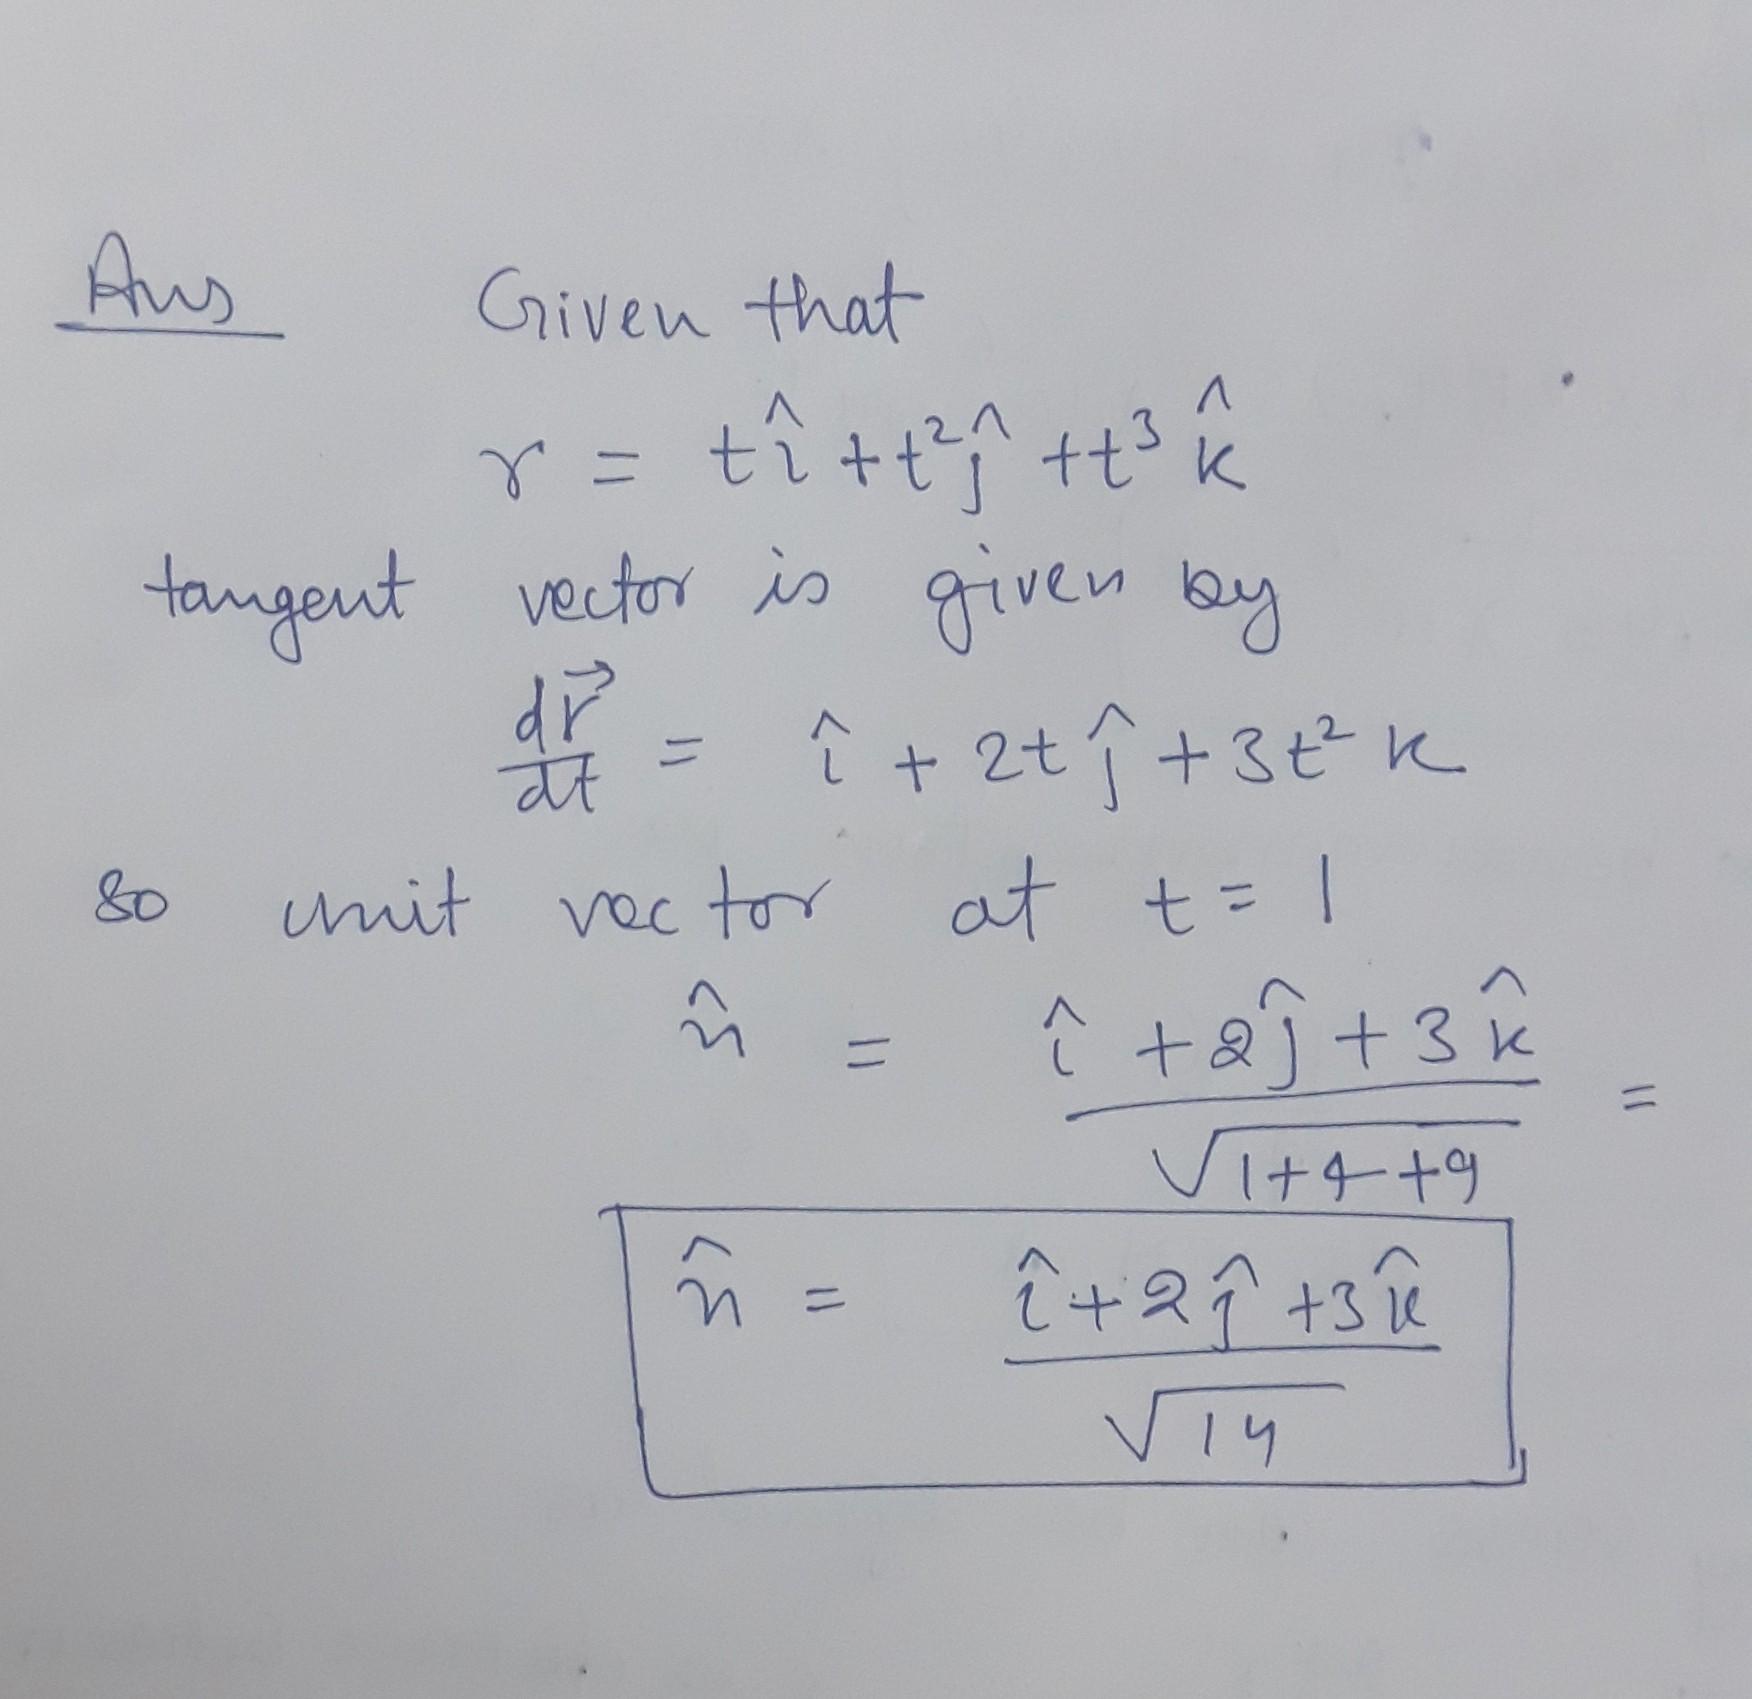 Ans Given that
r = tî + t²ĵ + t³ k̂
tangent vector is given by
dr⃗/dt = î + 2t ĵ + 3t² k
so unit vector at t = 1
n̂ = (î + 2ĵ + 3k̂)/√(1+4+9) =
n̂ = (î + 2ĵ + 3k̂)/√14